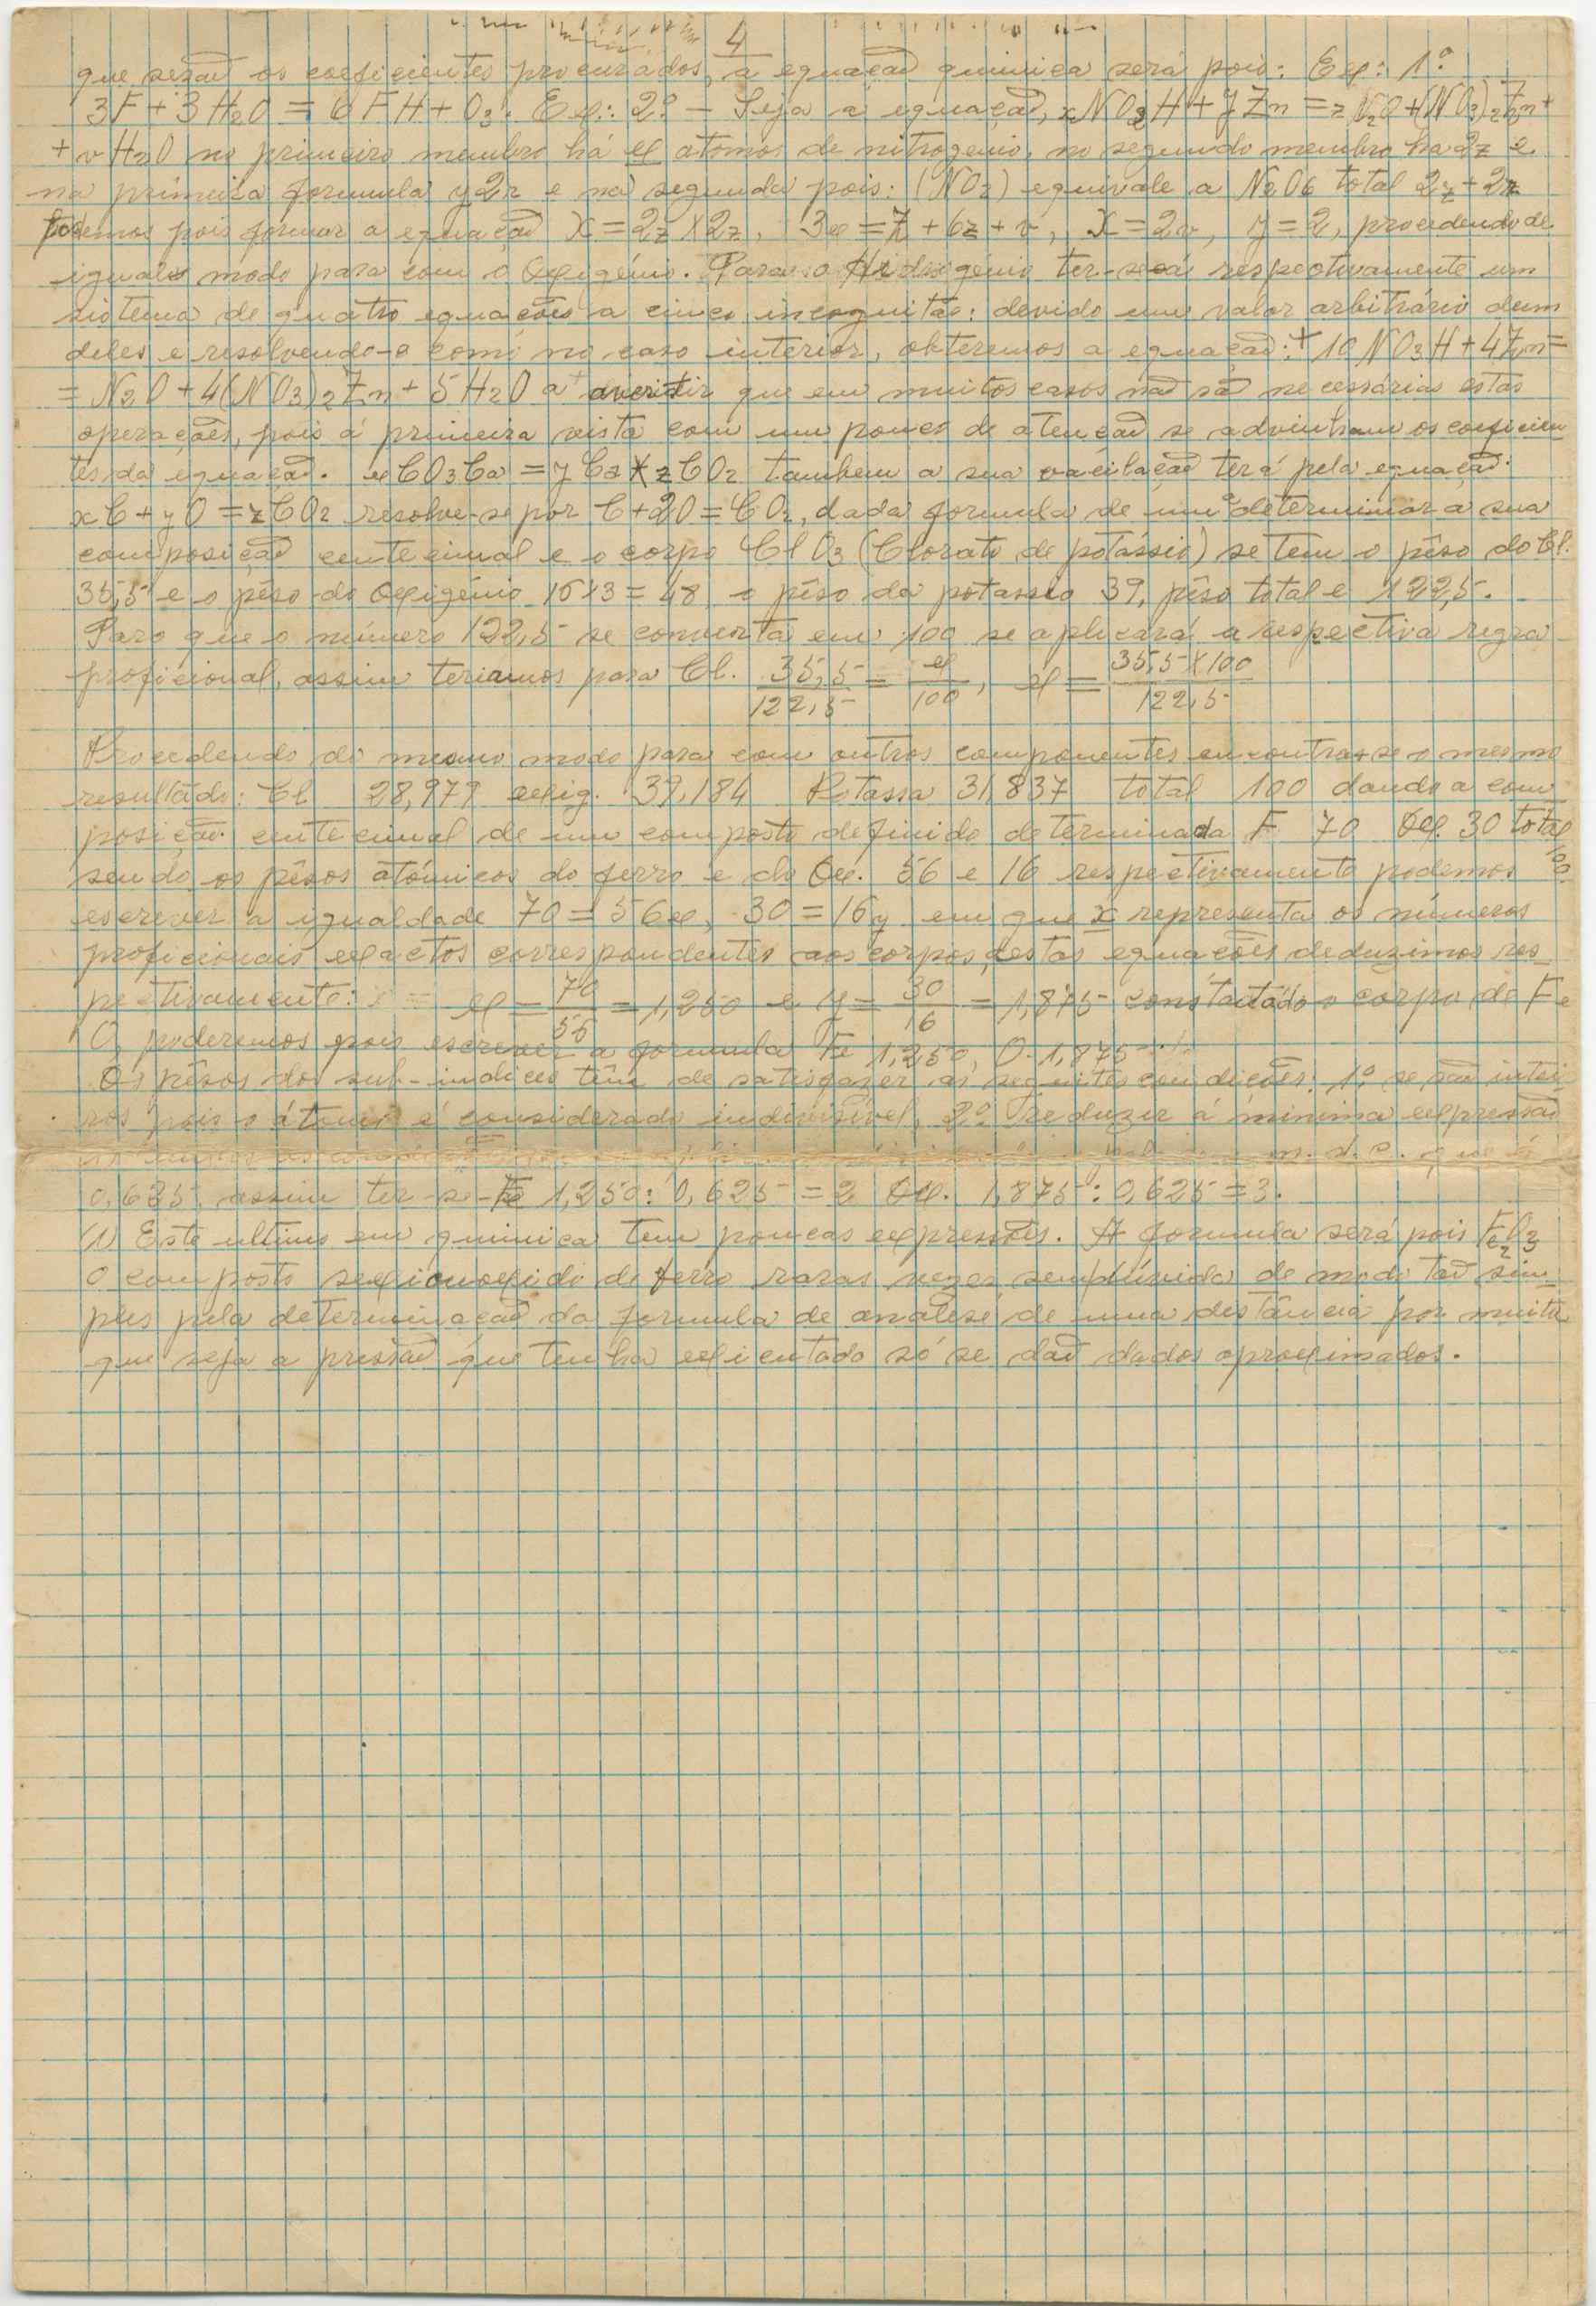 4
que serão os coeficientes procurados, a equação quimica será pois: Ex: 1º
3F + 3H2O = 6FH + O3. Ex.: 2º – Seja a equação, xNO3H + yZn = zN2O + (NO3)2Zn +
+ vH2O no primeiro membro há x atomos de nitrogenio, no segundo membro ha 2z e
na primeira formula y2z e na segunda pois: (NO2) equivale a N2O6 total 2z + 2z
podemos pois formar a equação X = 2z X 2z, 3x = z + 6z + v, X = 2v, y = 2, procedendo de
igualo modo para com o Oxigénio. Para o Hidrogénio ter-se-á respectivamente um
sistema de quatro equações a cinco incognitas: devido um valor arbitrário dum
deles e resolvendo-o como no caso interior, obteremos a equação: + 10 NO3H + 4Zn =
= N2O + 4(NO3)2Zn + 5H2O a avertir que em muitos casos não são necessárias estas
operações, pois á primeira vista com um pouco de atenção se advinham os coeficien
tes da equação. xCO3Ca = yCa X zCO2 tambem a sua vacilação terá pela equação:
xC + yO = zCO2 resolve-se por C + 2O = CO2, dada formula de um determinar a sua
composição centecimal e o corpo ClO3 (Clorato de potássio) se tem o pêso do Cl.
35,5 e o pêso do Oxigénio 16 x 3 = 48, o pêso da potassio 39, pêso total e 122,5.
Para que o número 122,5 se converta em 100 se aplicará a respectiva regra
proficional, assim teriamos para Cl. 35,5/122,5 = x/100, x = 35,5 X 100/122,5
Procedendo do mesmo modo para com outros componentes encontra-se o mesmo
resultado: Cl 28,979 oxig. 39,184 Potassa 31,837 total 100 dando a com
posição centecimal de um composto definido determinada F 70 Ox. 30 total 100
sendo os pêsos atómicos do ferro e do Ox. 56 e 16 respectivamente podemos
escrever a igualdade 70 = 56x, 30 = 16y em que x representa os números
proficionais exactos correspondentes aos corpos, destas equações deduzimos res
pectivamente: x = 70/56 = 1,250 e y = 30/16 = 1,875 constatado o corpo de Fe
O, poderemos pois escrever a formula Fe 1,250, O. 1,875
Os pêsos dos sub-indices têm de satisfazer as seguintes condições: 1º se são intei
ros pois o átomo é considerado indivisível, 2º reduzir á minima expressão
m.d.c. que é
0,625, assim ter-se Fe 1,250 : 0,625 = 2 Ox. 1,875 : 0,625 = 3.
(1) Este ultimo em quimica tem poucas expressões. A formula será pois Fe2O3
O composto sexionoxido de ferro raras vezes de modo tão sim
ples pela determinação da formula de analese de uma distância por muita
que seja a pressão que tenha exicutado só se dão dados aproximados.